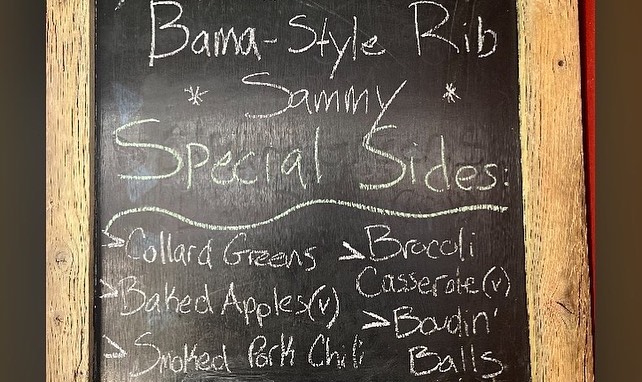 Bama-Style Rib
* Sammy *
Special Sides:
> Collard Greens
> Baked Apples (v)
> Smoked Pork Chili
> Brocoli
Casserole (v)
> Boudin'
Balls